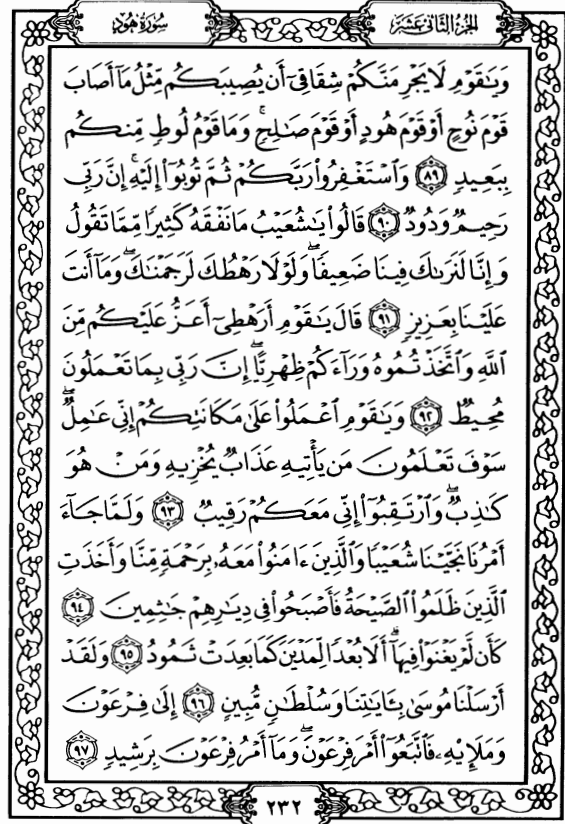 سُورَةُ هُودٍ
الجُزْءُ الثَّانِي عَشَرَ
وَيَٰقَوْمِ لَا يَجْرِمَنَّكُمْ شِقَاقِيٓ أَن يُصِيبَكُم مِّثْلُ مَآ أَصَابَ
قَوْمَ نُوحٍ أَوْ قَوْمَ هُودٍ أَوْ قَوْمَ صَٰلِحٍۚ وَمَا قَوْمُ لُوطٍ مِّنكُم
بِبَعِيدٍ ٨٩ وَٱسْتَغْفِرُوا۟ رَبَّكُمْ ثُمَّ تُوبُوٓا۟ إِلَيْهِۚ إِنَّ رَبِّى
رَحِيمٌ وَدُودٌ ٩٠ قَالُوا۟ يَٰشُعَيْبُ مَا نَفْقَهُ كَثِيرًا مِّمَّا تَقُولُ
وَإِنَّا لَنَرَىٰكَ فِينَا ضَعِيفًاۖ وَلَوْلَا رَهْطُكَ لَرَجَمْنَٰكَۖ وَمَآ أَنتَ
عَلَيْنَا بِعَزِيزٍ ٩١ قَالَ يَٰقَوْمِ أَرَهْطِىٓ أَعَزُّ عَلَيْكُم مِّنَ
ٱللَّهِ وَٱتَّخَذْتُمُوهُ وَرَآءَكُمْ ظِهْرِيًّاۖ إِنَّ رَبِّى بِمَا تَعْمَلُونَ
مُحِيطٌ ٩٢ وَيَٰقَوْمِ ٱعْمَلُوا۟ عَلَىٰ مَكَانَتِكُمْ إِنِّى عَٰمِلٌۖ
سَوْفَ تَعْلَمُونَ مَن يَأْتِيهِ عَذَابٌ يُخْزِيهِ وَمَنْ هُوَ
كَٰذِبٌۖ وَٱرْتَقِبُوٓا۟ إِنِّى مَعَكُمْ رَقِيبٌ ٩٣ وَلَمَّا جَآءَ
أَمْرُنَا نَجَّيْنَا شُعَيْبًا وَٱلَّذِينَ ءَامَنُوا۟ مَعَهُۥ بِرَحْمَةٍ مِّنَّا وَأَخَذَتِ
ٱلَّذِينَ ظَلَمُوا۟ ٱلصَّيْحَةُ فَأَصْبَحُوا۟ فِى دِيَٰرِهِمْ جَٰثِمِينَ ٩٤
كَأَن لَّمْ يَغْنَوْا۟ فِيهَآۗ أَلَا بُعْدًا لِّمَدْيَنَ كَمَا بَعِدَتْ ثَمُودُ ٩٥ وَلَقَدْ
أَرْسَلْنَا مُوسَىٰ بِـَٔايَٰتِنَا وَسُلْطَٰنٍ مُّبِينٍ ٩٦ إِلَىٰ فِرْعَوْنَ
وَمَلَإِي۟هِۦ فَٱتَّبَعُوٓا۟ أَمْرَ فِرْعَوْنَۖ وَمَآ أَمْرُ فِرْعَوْنَ بِرَشِيدٍ ٩٧
٢٣٢